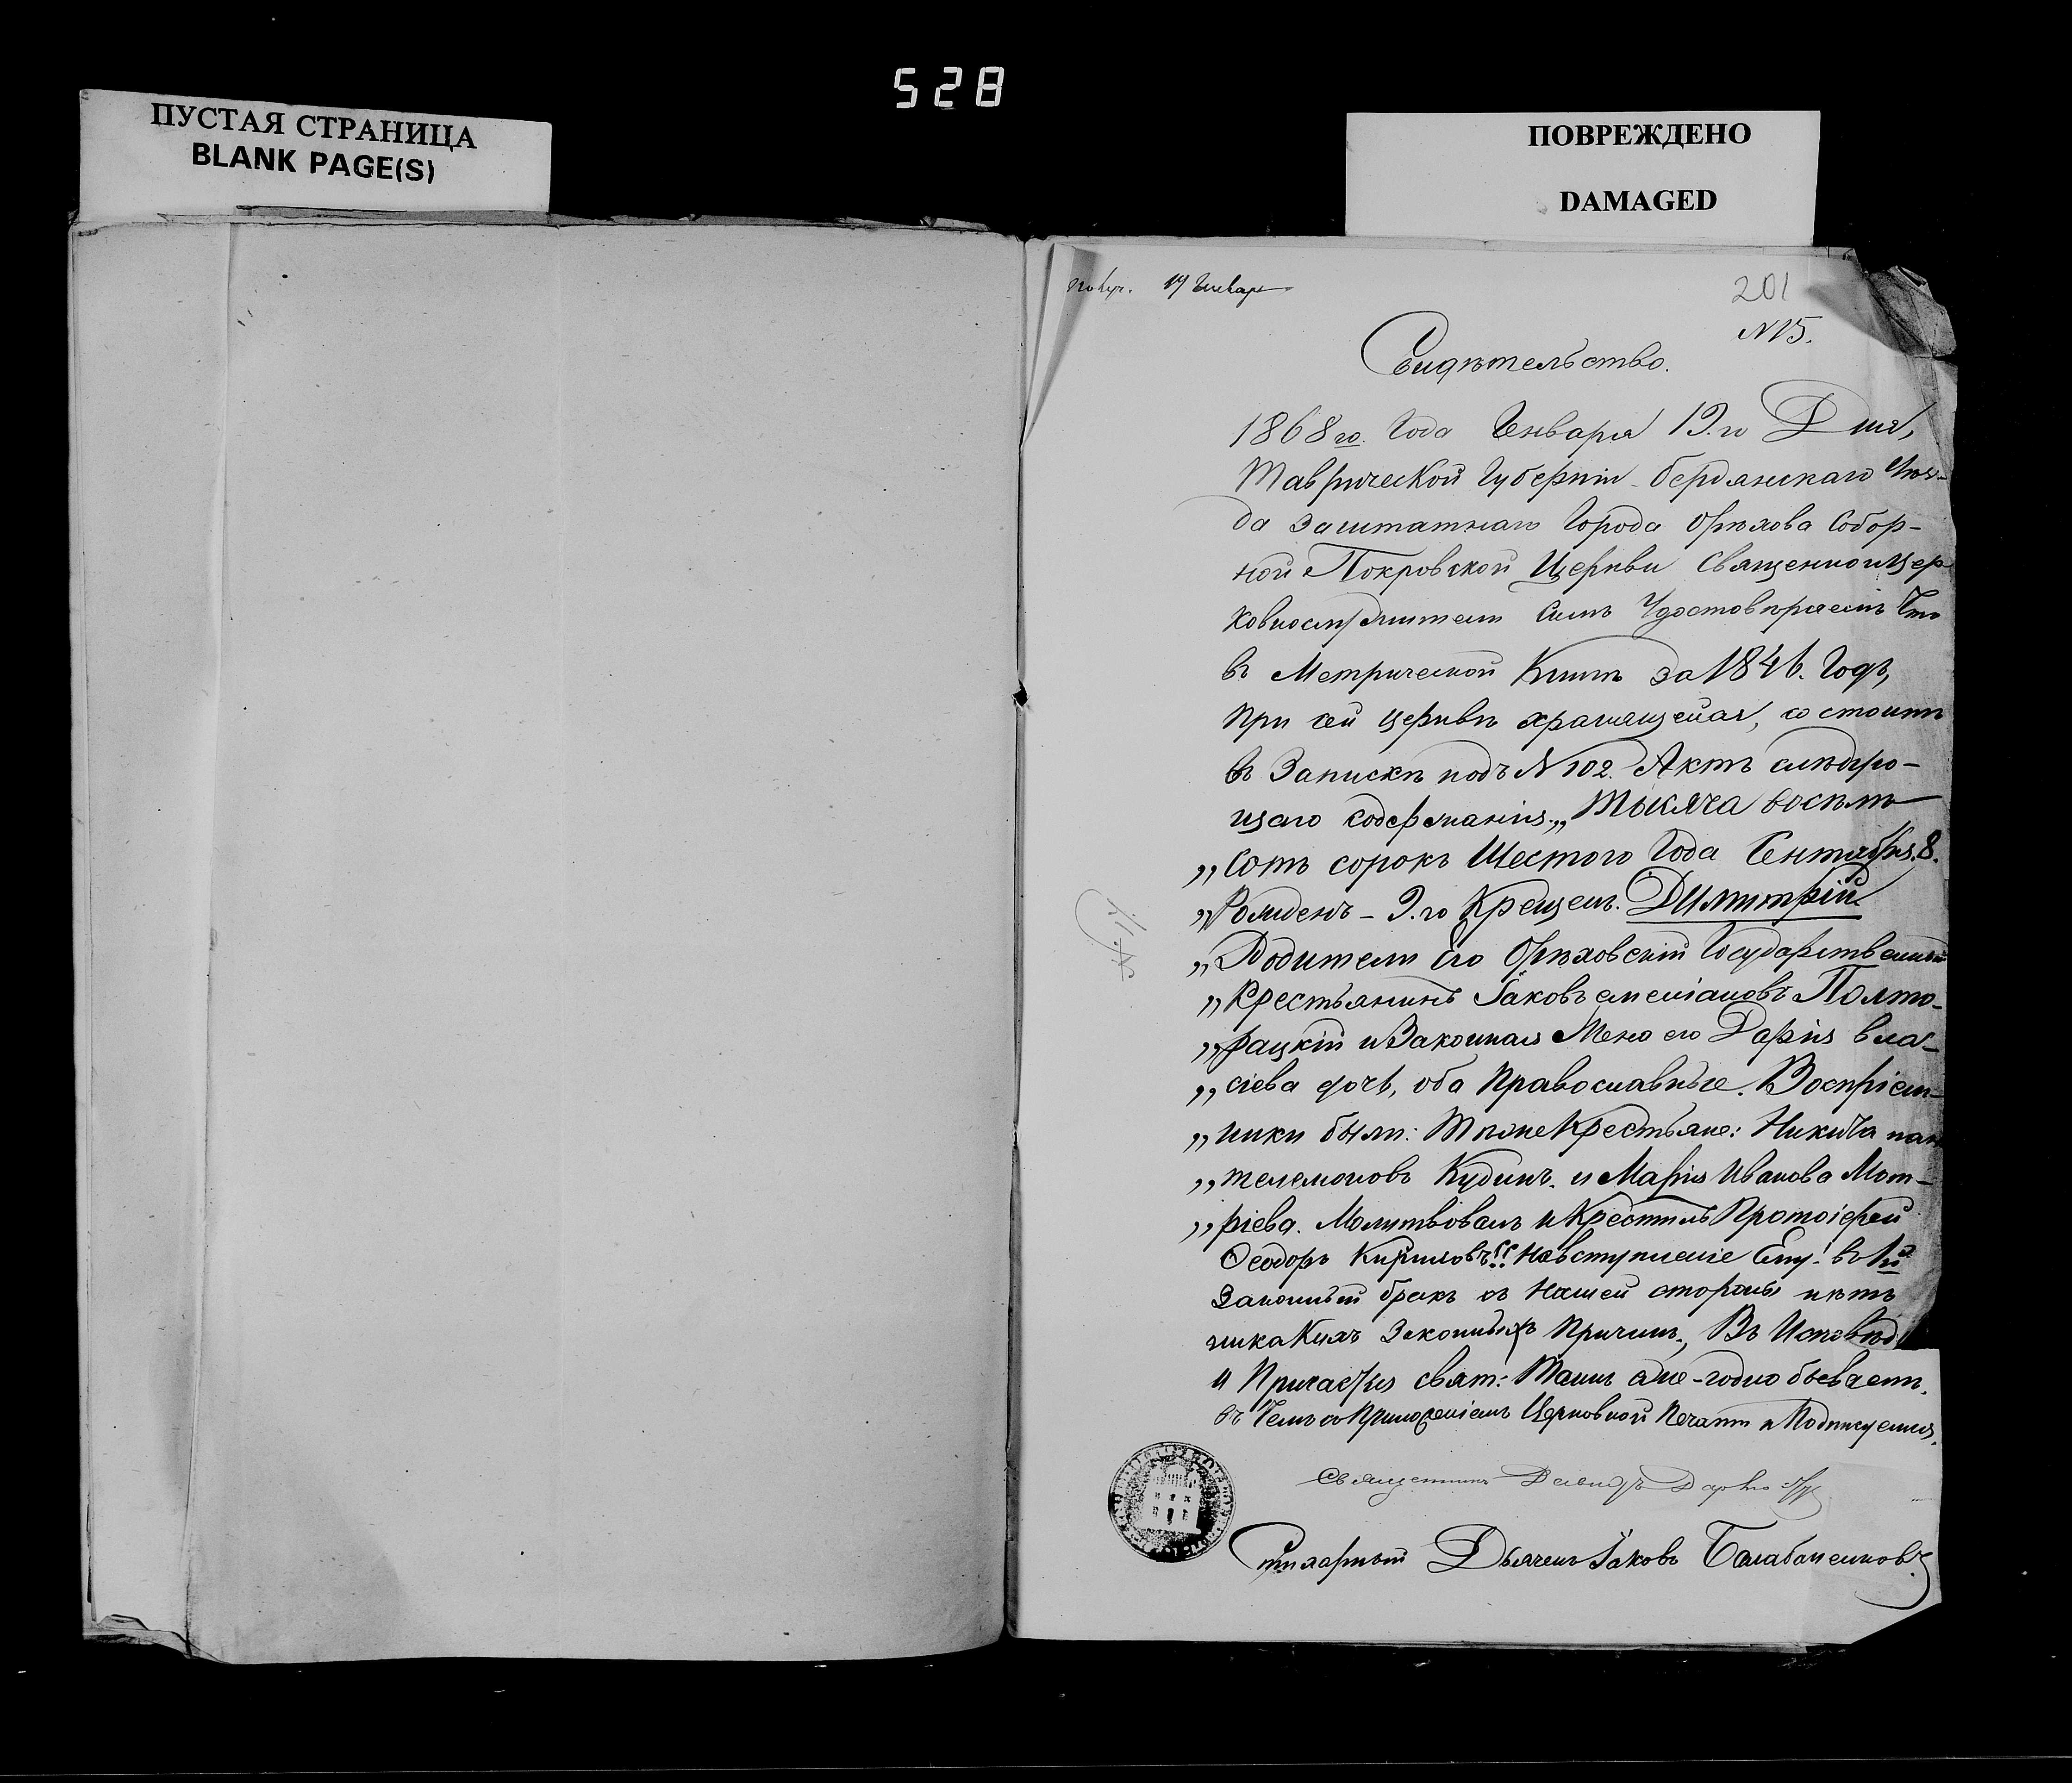 528
ПУСТАЯ СТРАНИЦА
BLANK PAGE(S)
ПОВРЕЖДЕНО
DAMAGED
19 Генваря
201
N 15.
Свидѣтельство.
1868го. Года Генваря 19.го Дня,
Таврической Губерніи Бердянскаго Уѣз-
да Заштатнаго Города Орѣхова Собор-
ной Покровской Церкви Священноцер
ковнослужители Симъ Удостовѣряемъ Что
въ Метрической Книгѣ за 1846. Годъ,
при сей церквѣ хранящейся, состоитъ
въ Запискѣ подъ N 102. Актъ слѣдую-
щаго содержанія: „Тысяча восѣмъ
„Сотъ сорокъ Шестого Года Сентября. 8.
„Рожденъ – 9.го Крещенъ. Димитрій
„Родители Его Орѣховскій Государственный
„Крестьянинъ Іаковъ емеліановъ Полто-
„рацкій и Законная Жена его Дарія вла-
„сіева дочь, оба Православные. Воспріем-
„ники были: Тѣже Крестьяне: Никита пан
„телемоновъ Кудинъ. и Марія Иванова Мот-
„ріева. Молитвовалъ и Крестилъ Протоіерей
Ѳеодоръ Кириловъ!! На вступленіе Ему въ 1й
Законный бракъ съ Нашей стороны нѣтъ
никакихъ Законныхъ Причинъ., Въ Исповѣд
и Причастія свят: Таинъ еже-годно бываетъ.
въ Чемъ съ Приложеніемъ Церковной Печати и Подписуемся.
Священникъ Давидъ
Стихарный Дьячекъ Іаковъ Балабаненковъ